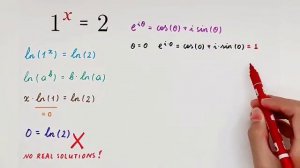 1^x = 2
ln(1^x) = ln(2)
ln(a^b) = b·ln(a)
x·ln(1) = ln(2)
= 0
0 = ln(2) X
NO REAL SOLUTIONS!
e^{iθ} = cos(θ) + i sin(θ)
θ = 0 e^{i·0} = cos(0) + i·sin(0) = 1